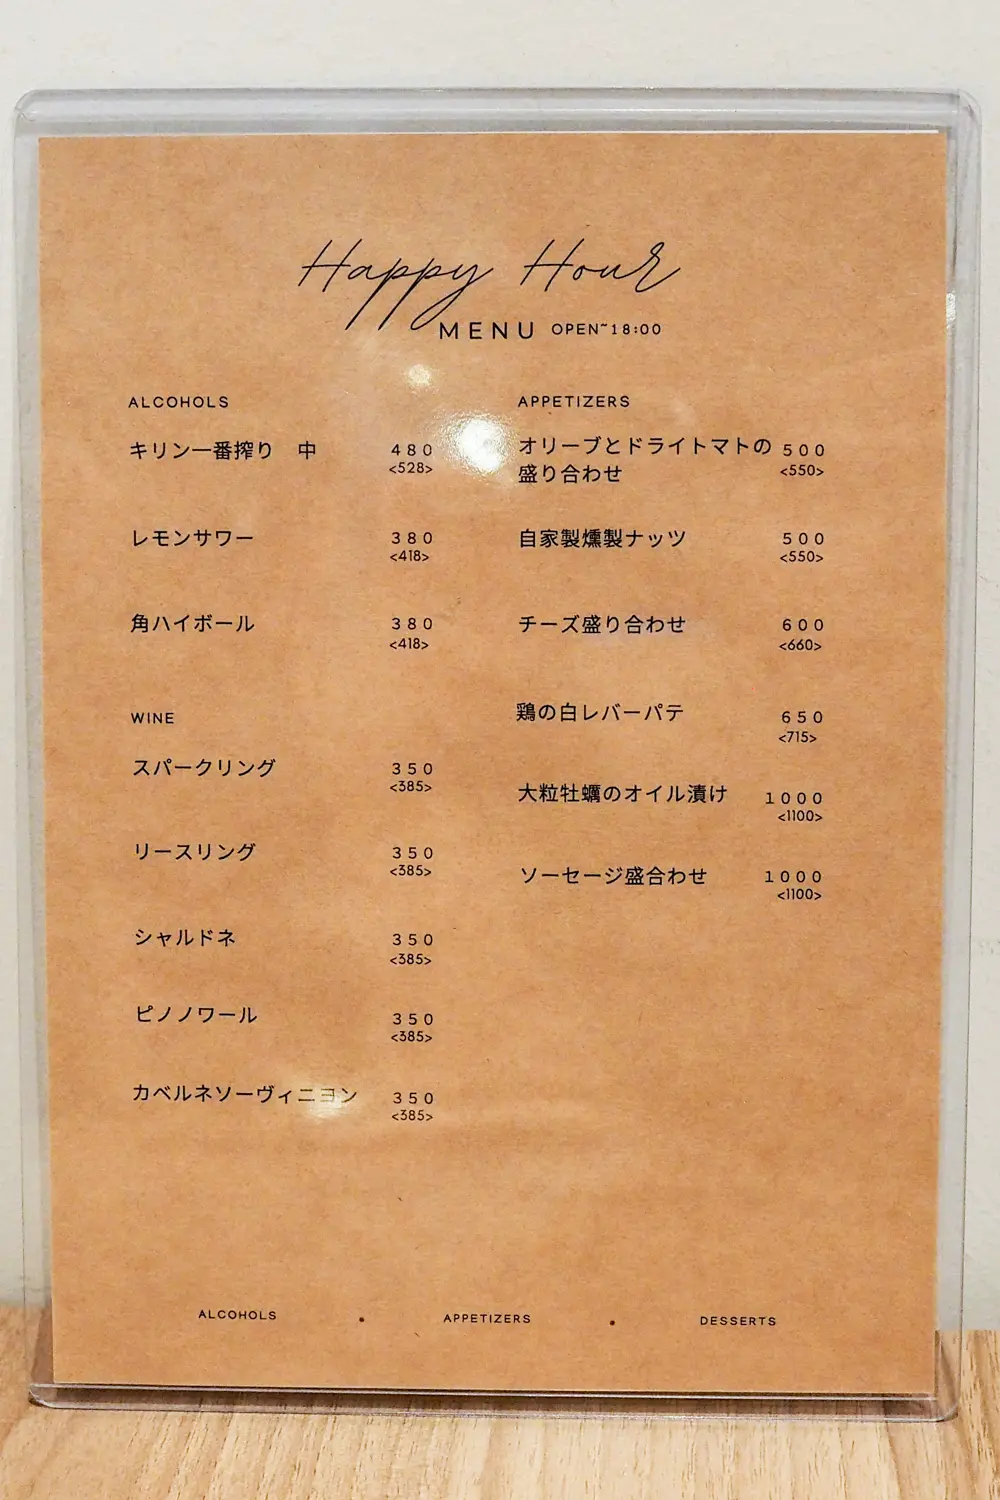 Happy Hour
MENU OPEN~18:00
ALCOHOLS
キリン一番搾り 中 480
<528>
レモンサワー 380
<418>
角ハイボール 380
<418>
WINE
スパークリング 350
<385>
リースリング 350
<385>
シャルドネ 350
<385>
ピノノワール 350
<385>
カベルネソーヴィニヨン 350
<385>
APPETIZERS
オリーブとドライトマトの 500
盛り合わせ <550>
自家製燻製ナッツ 500
<550>
チーズ盛り合わせ 600
<660>
鶏の白レバーパテ 650
<715>
大粒牡蠣のオイル漬け 1000
<1100>
ソーセージ盛合わせ 1000
<1100>
ALCOHOLS • APPETIZERS • DESSERTS